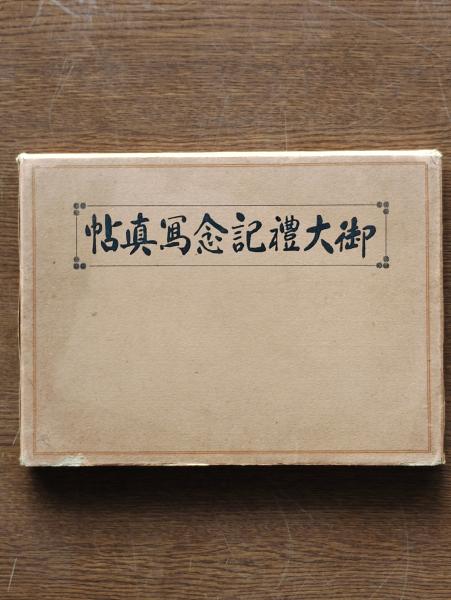 御大禮記念写真帖